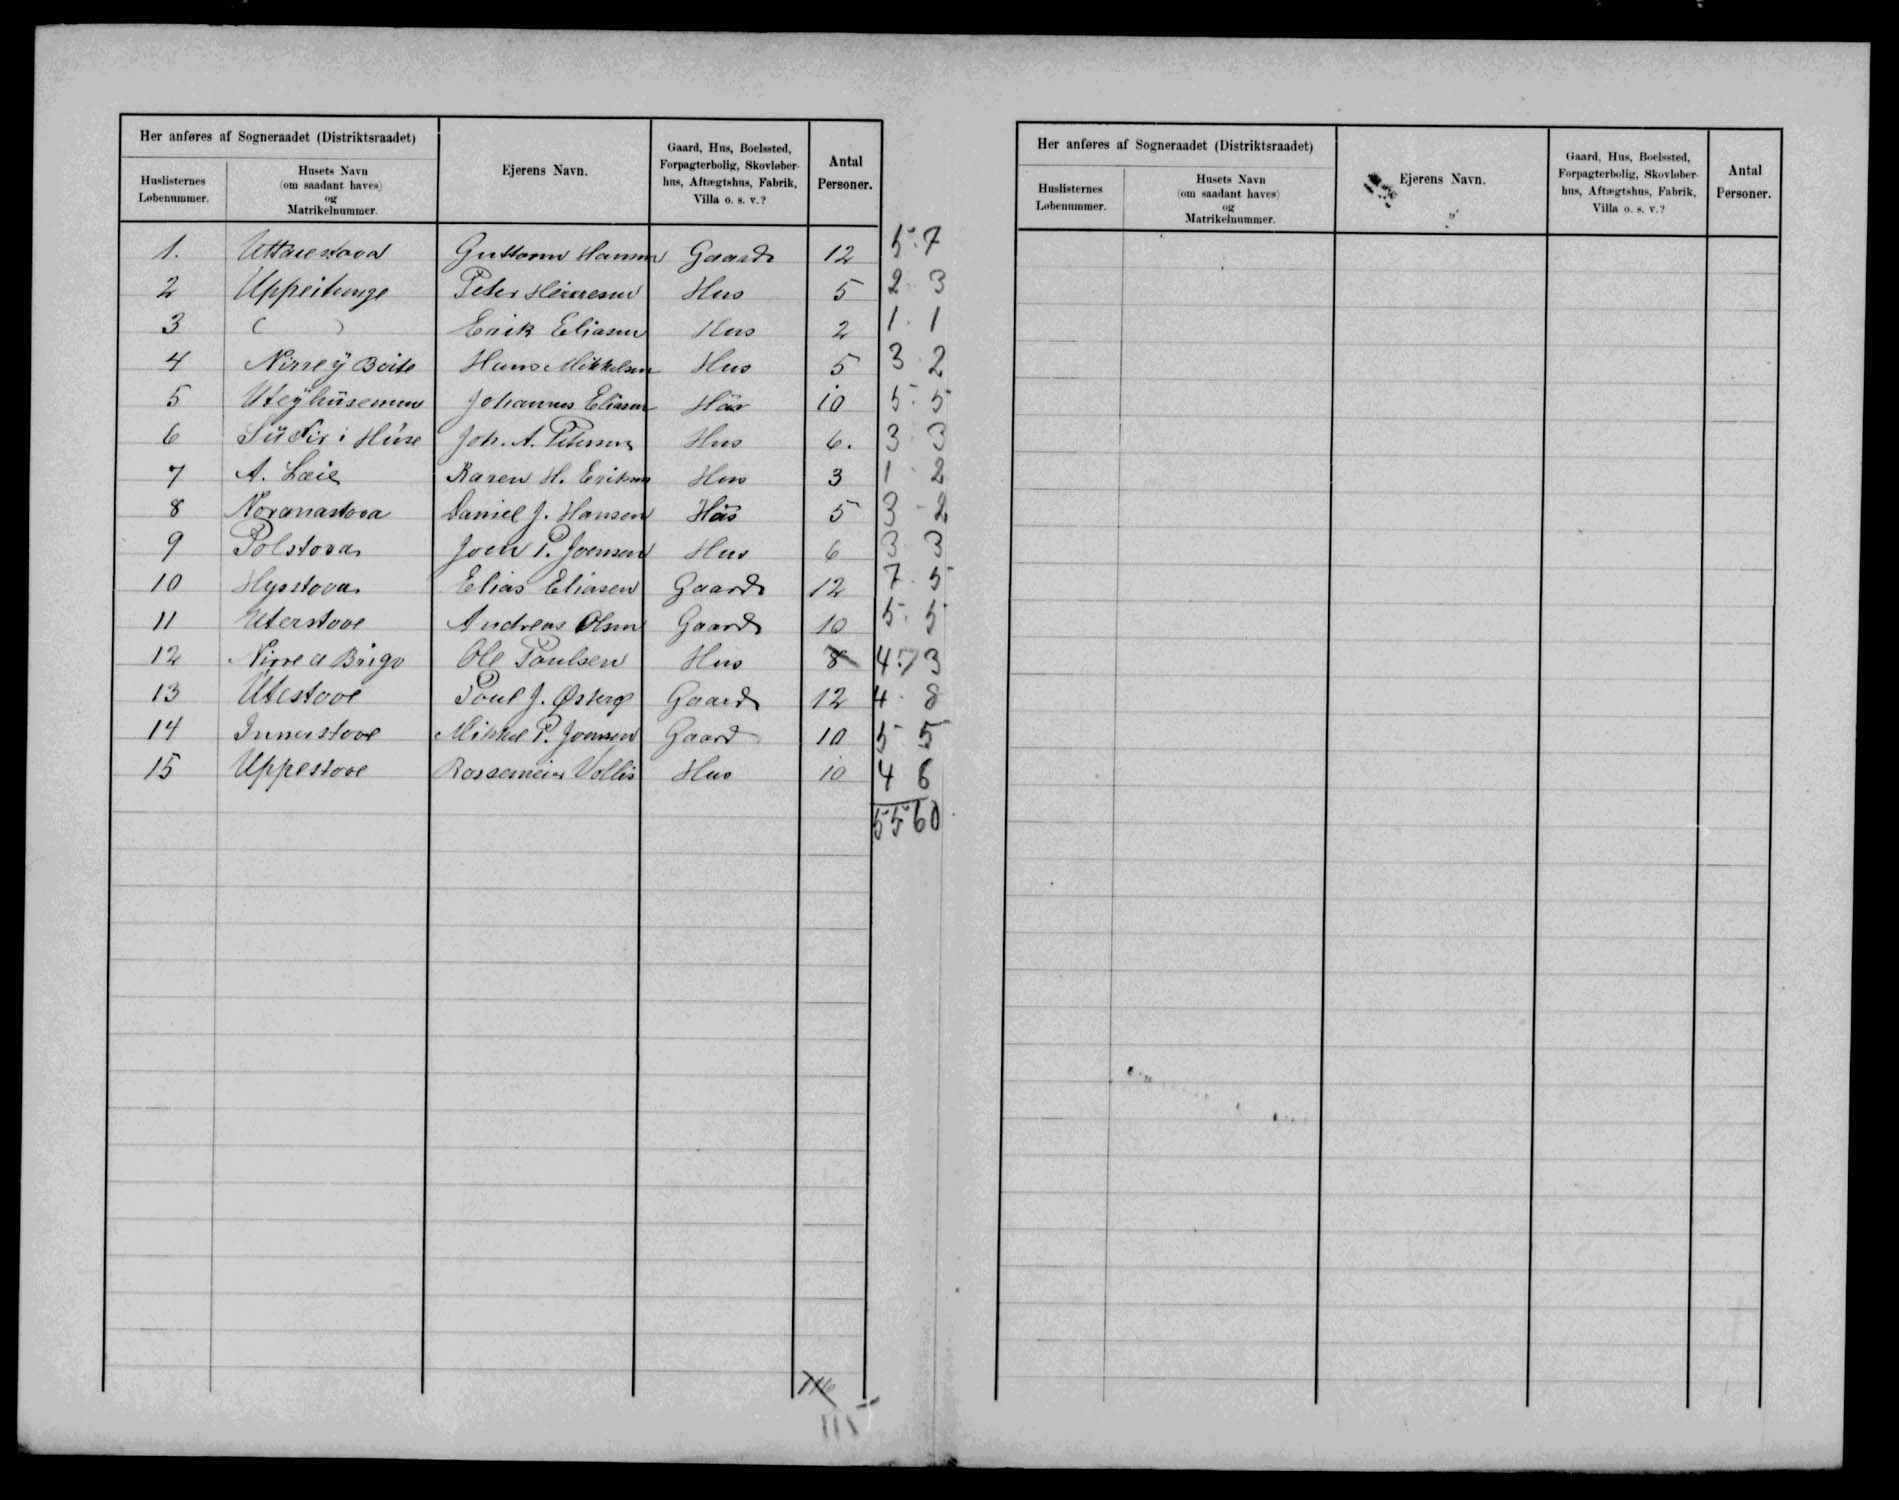 Her anføres af Sogneraadet (Distriktsraadet)
Huslisternes Løbenummer. Husets Navn (om saadant haves) og Matrikelnummer. Ejerens Navn. Gaard, Hus, Boelssted, Forpagterbolig, Skovløberhus, Aftægtshus, Fabrik, Villa o. s. v.? Antal Personer.
1. Guttorm Hansen Gaard 12 5 7
2 Uppeitunge Peter Hansen Hus 5 2 3
3 ( ) Erik Eliasen Hus 2 1 1
4 Nirrey Boite Hans Mikkelsen Hus 5 3 2
5 Uteyhüsemun Johannes Eliasen Hus 10 5 5
6 i Húse Joh. A. Petersen Hus 6. 3 3
7 A. Læie Karen H. Eriksen Hus 3 1 2
8 Noranastova Daniel J. Hansen Hús 5 3 2
9 Polstova Joen P. Joensen Hus 6 3 3
10 Hysstova Elias Eliasen Gaard 12 7 5
11 Uterstove Andreas Olsen Gaard 10 5 5
12 Nirre a Brigv Ole Poulsen Hus 8 4 7 3
13 Utestove Poul J. Østerø Gaard 12 4 8
14 Innustove Mikkel P. Joensen Gaard 10 5 5
15 Uppestove Rossemeier Vollis Hus 10 4 6
55 60
116
115
Her anføres af Sogneraadet (Distriktsraadet)
Huslisternes Løbenummer. Husets Navn (om saadant haves) og Matrikelnummer. Ejerens Navn. Gaard, Hus, Boelssted, Forpagterbolig, Skovløberhus, Aftægtshus, Fabrik, Villa o. s. v.? Antal Personer.